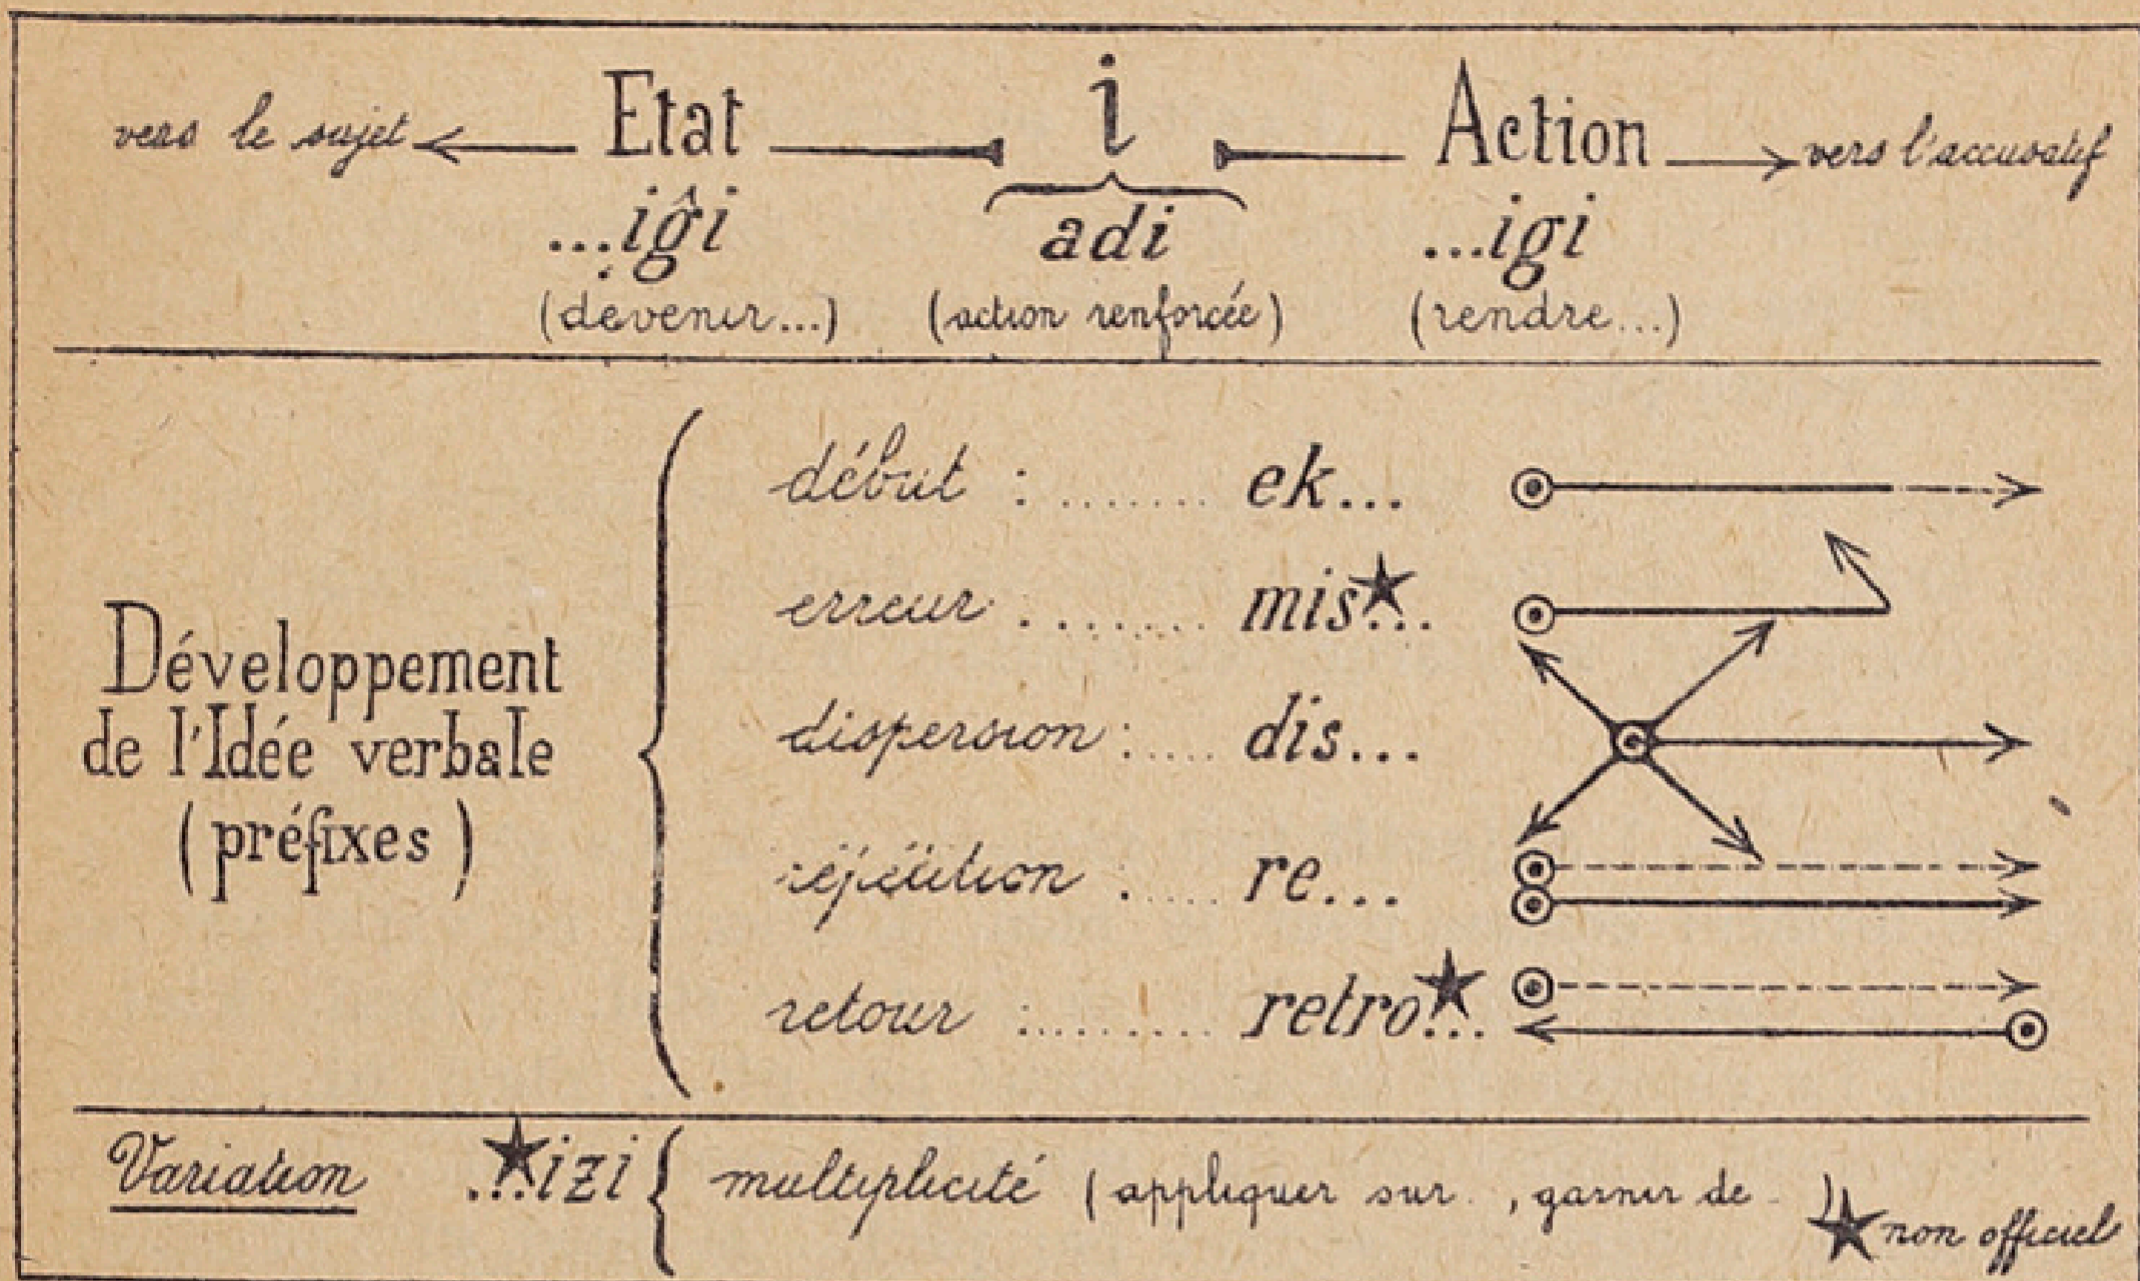 vers le sujet Etat i Action vers l'accusatif
...iĝi adi ...igi
(devenir...) (action renforcée) (rendre...)
début : ....... ek...
erreur ....... mis★...
Développement
de l'Idée verbale
(préfixes)
dispersion : .... dis...
répétition ..... re...
retour : ........ retro★...
Variation ...★izi { multiplicité (appliquer sur.. , garnir de..)
★ non officiel